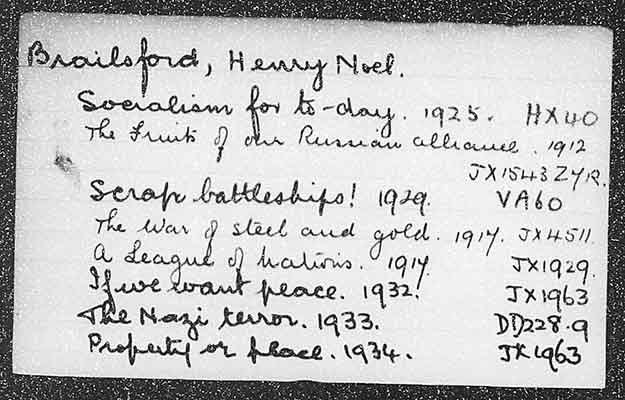 Brailsford, Henry Noel.
Socialism for to-day. 1925. HX40
The Fruits of our Russian alliance. 1912
JX1543 Z7R.
Scrap battleships! 1929. VA60
The War of steel and gold. 1917. JX4511.
A League of Nations. 1917. JX1929.
If we want peace. 1932. JX1963
The Nazi terror. 1933. DD228.9
Property or peace. 1934. JX1963